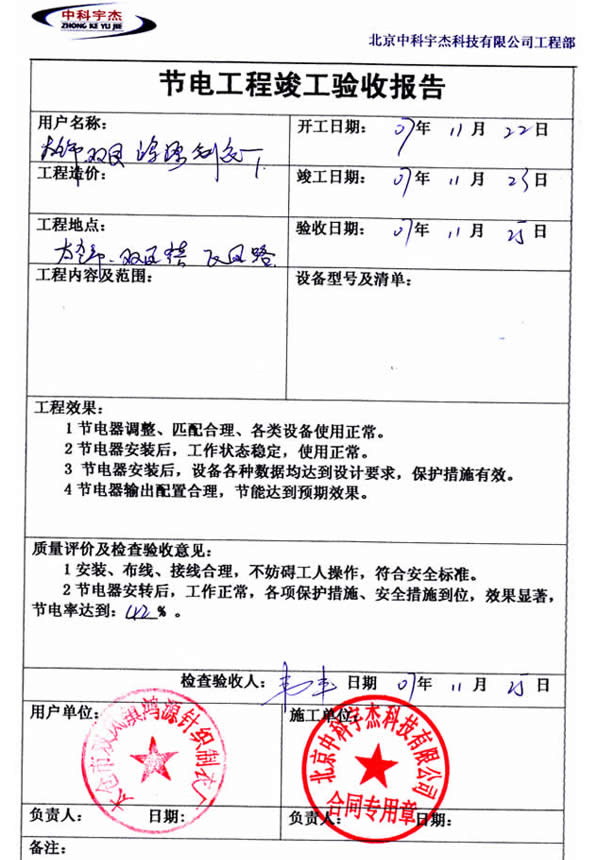 中科宇杰
ZHONG KE YU JIE
北京中科宇杰科技有限公司工程部
节电工程竣工验收报告
用户名称: 开工日期: 07年 11月 22日
工程造价: 竣工日期: 07年 11月 23日
工程地点: 验收日期: 07年 11月 25日
工程内容及范围: 设备型号及清单:
工程效果:
1 节电器调整、匹配合理、各类设备使用正常。
2 节电器安装后,工作状态稳定,使用正常。
3 节电器安装后,设备各种数据均达到设计要求,保护措施有效。
4 节电器输出配置合理,节能达到预期效果。
质量评价及检查验收意见:
1 安装、布线、接线合理,不妨碍工人操作,符合安全标准。
2 节电器安转后,工作正常,各项保护措施、安全措施到位,效果显著,
节电率达到: 42% 。
检查验收人: 日期 07年 11月 25日
用户单位: 施工单位:
太仓市双凤镇鸿源针织制衣厂
北京中科宇杰科技有限公司
合同专用章
负责人: 日期: 负责人: 日期:
备注: